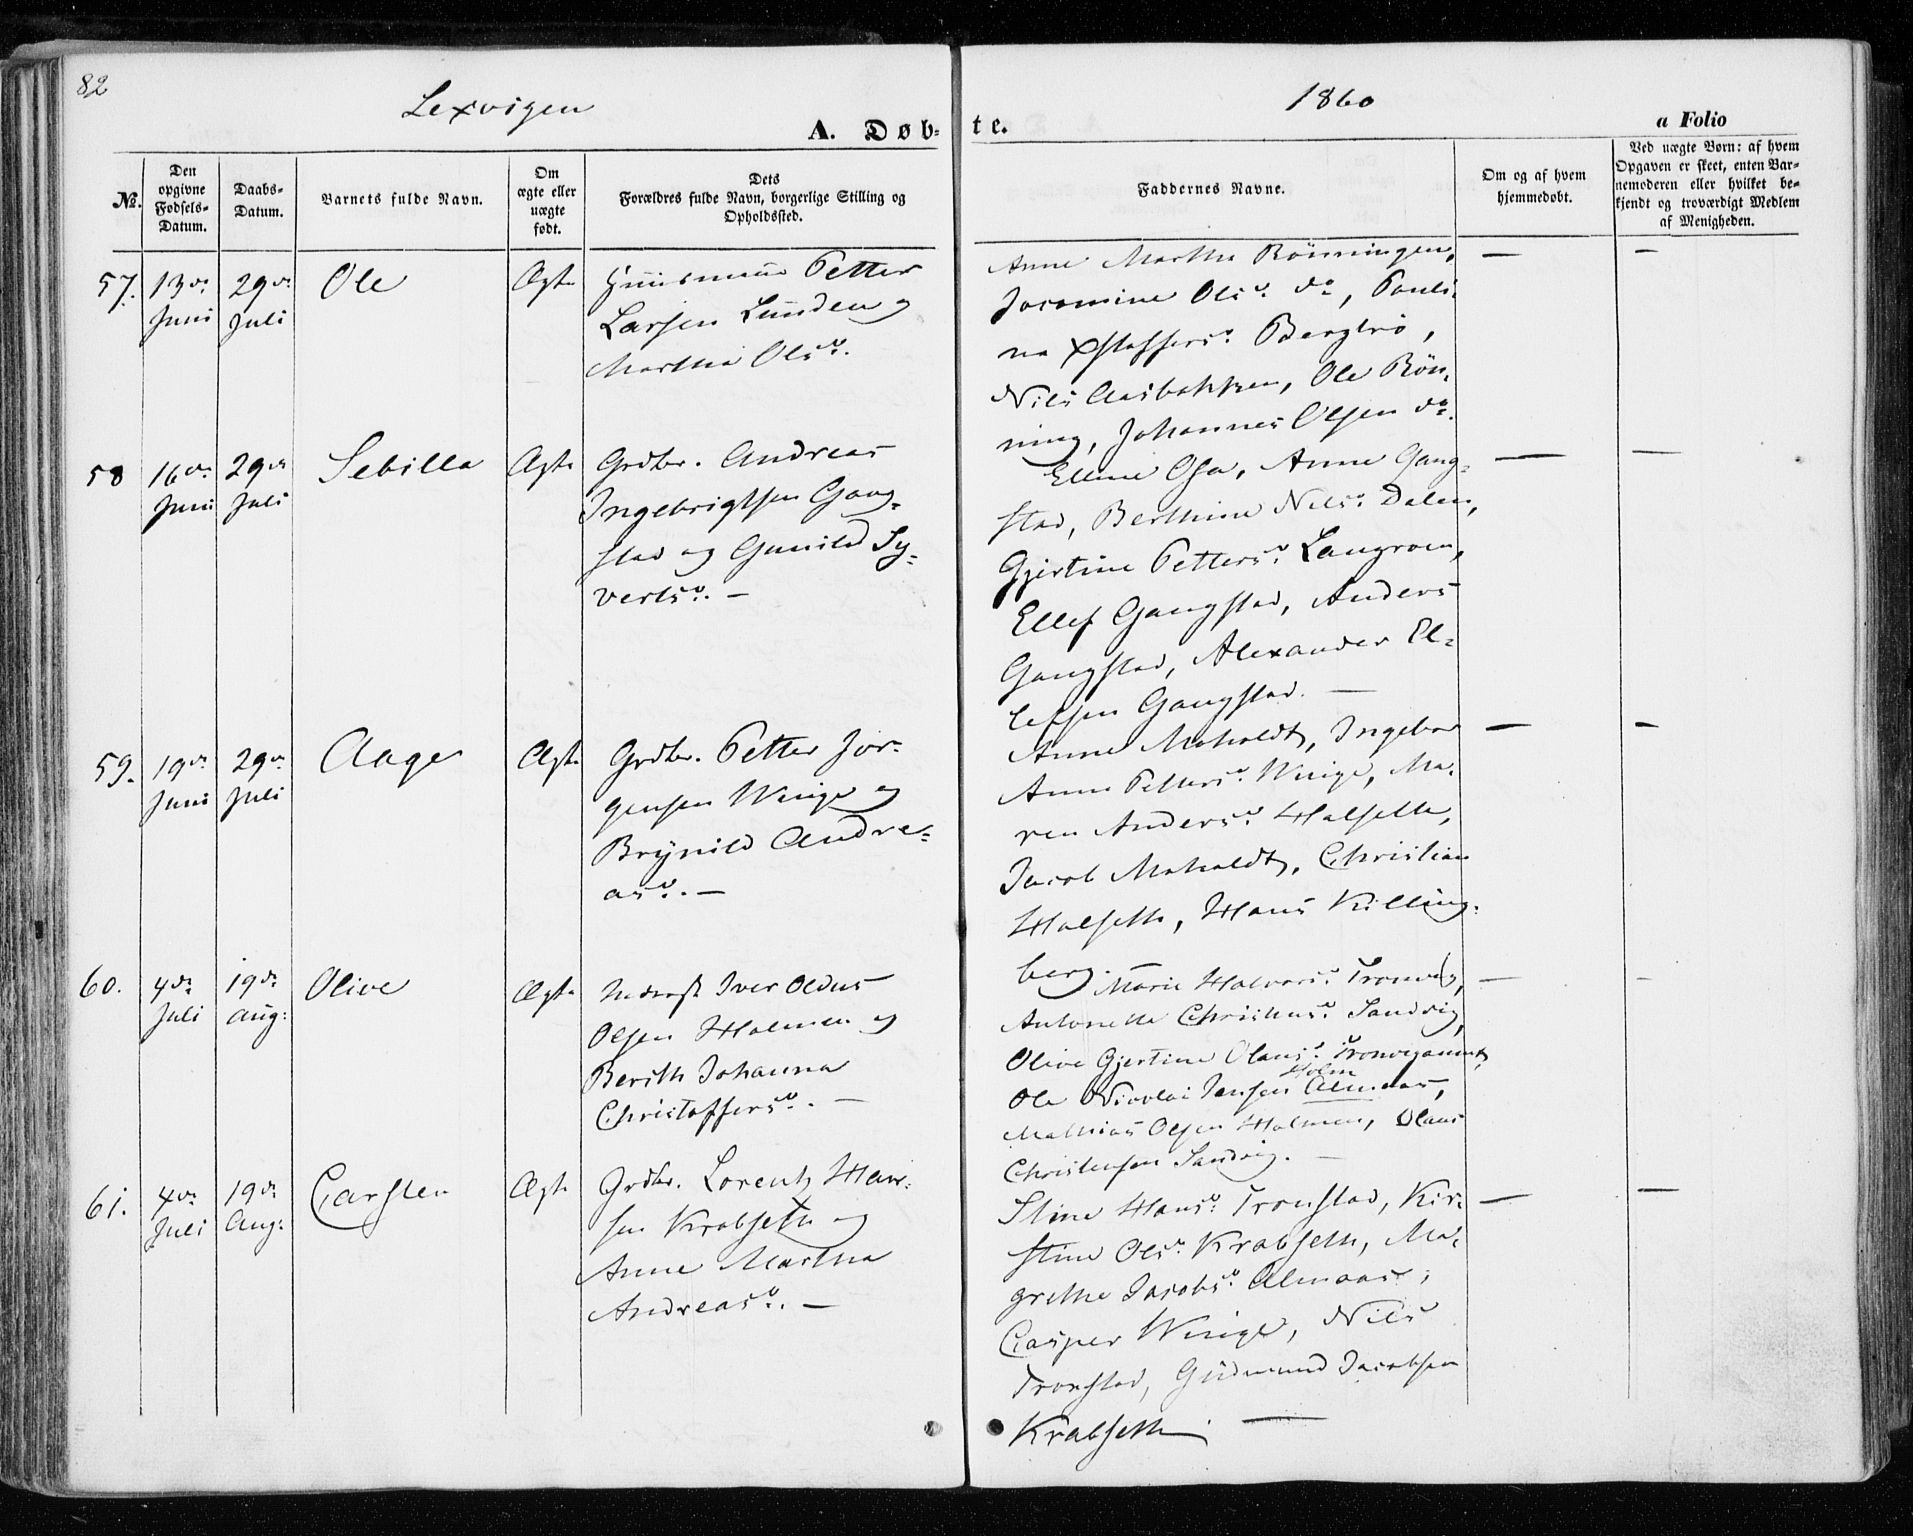 82
Lexvigen
1860
A. Døb-
te.
a Folio
No.
Den opgivne Fødsels-Datum.
Daabs-Datum.
Barnets fulde Navn.
Om ægte eller uægte født.
Dets Forældres fulde Navn, borgerlige Stilling og Opholdssted.
Faddernes Navne.
Om og af hvem hjemmedøbt.
Ved uægte Børn: af hvem Opgaven er skeet, enten Barnemoderen eller hvilket bekjendt og troværdigt Medlem af Menigheden.
57. 13de Juni 29de Juli Ole Ægte
Huusmand Petter
Larsen Lunden og
Martha Olsd.
Anne Martha Rönningen,
Josemine Olsd. do, Pauli-
na Xstoffersd. Bergtrö,
Nils Aasbakken, Ole Rön-
ning, Johannes Olsen do.
— —
58 16de Juni 29de Juli Sebilla Ægte
Grdbr. Andreas
Ingebrigtsen Gang-
stad og Gunild Sy-
vertsd. —
Elline Osa, Anne Gang-
stad, Berthine Nilsd. Dalen,
Gjertine Pettersd. Langroen,
Ellef Gangstad, Anders
Gangstad, Alexander El-
lefsen Gangstad. —
— —
59. 19de Juni 29de Juli Aage Ægte
Grdbr. Petter Jör-
gensen Winge og
Brynild Andre-
asd. —
Anne Moholdt, Ingebor
Anne Pettersd. Winge, Ma-
ren Andersd. Halseth,
Jacob Moholdt, Christian
Halseth, Hans Killing-
berg. —
— —
60. 4de Juli 19de Aug: Olive Ægte
Inderst Iver Oldus
Olsen Holmen og
Berith Johanna
Christoffersd. —
Marie Halvorsd. Tronvig,
Antonette Christensd. Sandvig,
Olive Gjertine Olausd.
Holm
Ole Nicolai Jensen Almaas,
Mathias Olsen Holmen, Olaus
Christensen Sandvig. —
— —
61. 4de Juli 19de Aug: Carsten Ægte
Grdbr. Lorentz Han-
sen Krabseth og
Anne Martha
Andreasd. —
Stine Hansd. Tronstad, Kir-
stine Olsd. Krabseth, Ma-
grethe Jacobsd. Almaas,
Casper Winge, Nils
Tronstad, Gudmund Jacobsen
Krabseth —
— —